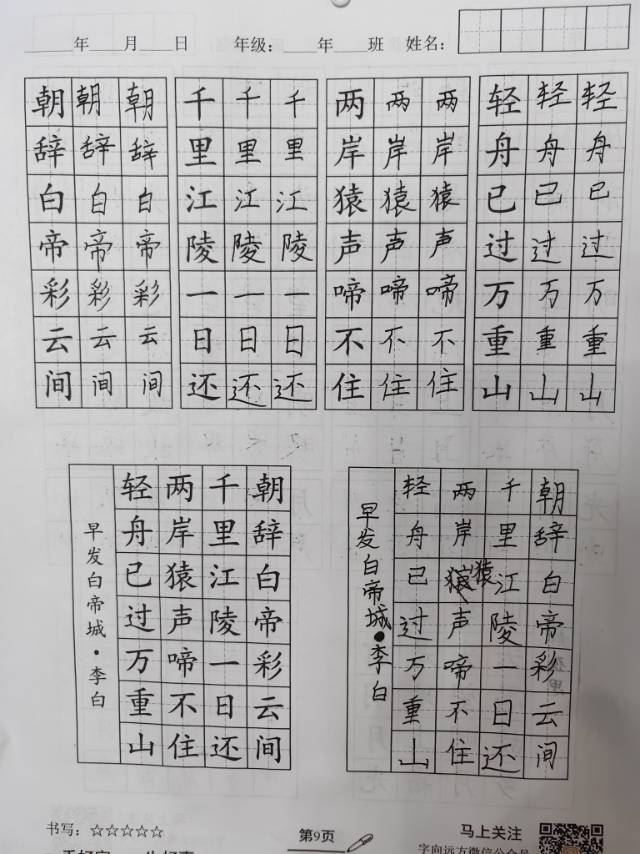 年 月 日 年级： 年 班 姓名：
朝 朝 朝 千 千 千 两 两 两 轻 轻 轻
辞 辞 辞 里 里 里 岸 岸 岸 舟 舟 舟
白 白 白 江 江 江 猿 猿 猿 已 已 已
帝 帝 帝 陵 陵 陵 声 声 声 过 过 过
彩 彩 彩 一 一 一 啼 啼 啼 万 万 万
云 云 云 日 日 日 不 不 不 重 重 重
间 间 间 还 还 还 住 住 住 山 山 山
早发白帝城·李白
朝辞白帝彩云间
千里江陵一日还
两岸猿声啼不住
轻舟已过万重山
早发白帝城·李白
朝辞白帝彩云间
千里江陵一日还
两岸猿声啼不住
轻舟已过万重山
书写：☆☆☆☆☆
第9页
马上关注
字向远方微信公众号